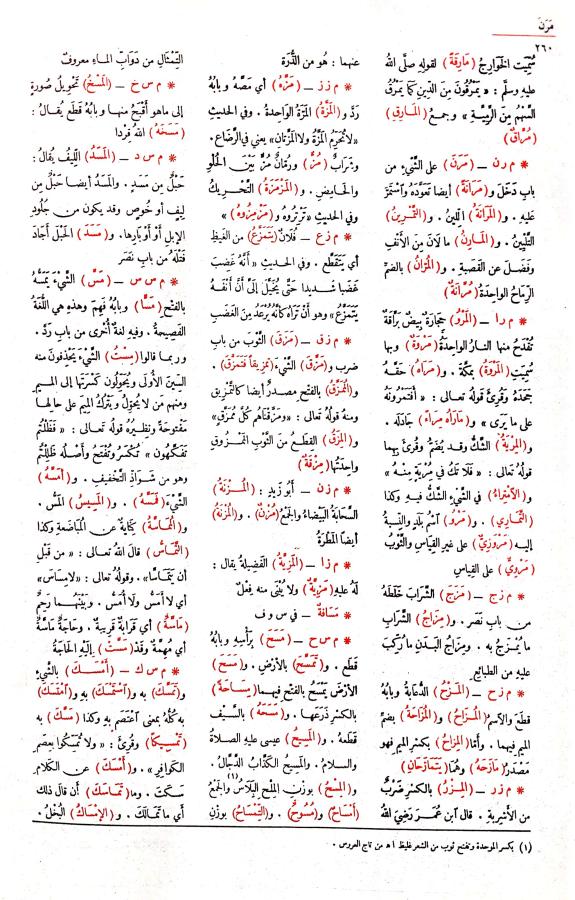 مَرَنَ
٢٦٠
سُمِّيَت الخَوارِجُ (مَارِقَةً) لقوله صلَّى الله
عليه وسلَّم : « يَمْرُقُونَ مِنَ الدِّينِ كما يَمرُقُ
السَّهْم مِنَ الرَّمِيَّةِ » وجمعُ (المَارِقِ)
(مُرَّاقٌ)
* م ر ن – (مَرَنَ) على الشَّيْءِ من
باب دَخَلَ و(مَرَانَةً) أيضا تَعَوَّدَهُ واسْتَمَرَّ
عليه . و(المَرَانَةُ) اللِّينُ . و(التَّمْرِينُ)
التَّلْيِينُ . و(المَارِنُ) ما لَانَ مِنَ الأَنْفِ
وفَضَلَ عَنِ القَصَبةِ . و(المُرَّانُ) بالضمِّ
الرِّماحُ الواحِدةُ (مُرَّانَةٌ)
* م ر ا – (المَرْوُ) حِجَارَةٌ بِيضٌ بَرَّاقَةٌ
تُقْدَحُ منها النَّارُ الواحدةُ (مَرْوَةٌ) وبها
سُمِّيَتِ (المَرْوَةُ) بمكَّةَ . و(مَرَاهُ) حَقَّهُ
جَحَدَهُ وقُرِئَ قولُه تعالى : « أفَتَمْرُونَهُ
على ما يَرَى » و(مَارَاهُ مِرَاءً) جَادَلَه .
و(المِرْيَةُ) الشَّكُّ وقد يُضَمُّ وقُرِئَ بِهما
قولُهُ تعالى : « فَلَا تَكُ في مِرْيَةٍ مِنْهُ »
و(الامْتِرَاءُ) في الشَّيْءِ الشَّكُّ فيه وكذا
(التَّمَارِي) . و(مَرْوُ) اسْمُ بَلَدٍ والنِّسبةُ
إليه (مَرْوَزِيٌّ) على غيرِ القِياسِ والثَّوْبُ
(مَرْوِيٌّ) على القِياس
* م ز ج – (مَزَجَ) الشَّرَابَ خَلَطَهُ
من باب نَصَر . و(مِزَاجُ) الشَّرَابِ
ما يُمْزَجُ به . ومِزاجُ البَدَنِ ما رُكِّبَ
عليه من الطبائع
* م ز ح – (المَزْحُ) الدُّعَابَةُ وبابُهُ
قطَع والاسمُ (المُزَاحُ) و(المُزَاحَةُ) بضمِّ
الميم فيهما . وأمّا (المِزَاحُ) بكسْر الميم فهو
مَصْدَرُ (مَازَحَهُ) وهُمَا (يَتَمَازَحَانِ)
* م ز ر – (المِزْرُ) بالكسْرِ ضَرْبٌ
من الأَشرِبةِ . قال ابن عُمَرَ رَضِيَ اللهُ
عنهما : هُو من الذُّرَةِ
* م ز ز – (مَزَّهُ) أي مَصَّهُ وبابُهُ
رَدَّ و(المَزَّةُ) المَرَّةُ الواحِدةُ . وفي الحديثِ
«لا تُحَرِّمُ المَزَّةُ ولا المَزَّتَانِ» يعني في الرَّضاع .
وشَرابٌ (مُزٌّ) ورُمَّانٌ مُزٌّ بَيْنَ الحُلْوِ
والحَامِضِ . و(المَزْمَزَةُ) التَّحْرِيكُ
وفي الحديثِ «تَرْتِرُوهُ و(مَزْمِزُوهُ) »
* م ز ع – فُلَانٌ (يَتَمَزَّعُ) من الغَيْظِ
أي يَتَقَطَّعُ . وفي الحديث « أَنَّهُ غَضِبَ
غَضَبا شديدا حتَّى يُخَيَّلَ إلَيَّ أنَّ أنفَهُ
يَتَمَزَّعُ» وهو أن تَرَاهُ كأنَّهُ يُرْعَدُ مِنَ الغَضَب
* م ز ق – (مَزَقَ) الثَّوْبَ من باب
ضرب و(مَزَّقَ) الشَّيءَ (تَمْزِيقًا فَتَمَزَّقَ) .
و(المُمَزَّقُ) بالفَتْحِ مصدرٌ أيضا كالتَّمْزِيقِ
ومنهُ قولُهُ تعالى : «ومَزَّقْنَاهُم كلَّ مُمَزَّقٍ»
و(المِزَقُ) القِطَعُ من الثَّوْبِ المَمْزُوقِ
واحِدَتُها (مِزْقَةٌ)
* م ز ن – أبُو زَيدٍ : (المُزْنَةُ)
السَّحَابةُ البَيْضاءُ والجَمْعُ (مُزْنٌ) . و(المُزْنَةُ)
أيضًا المَطْرَةُ
* م ز ا – (المَزِيَّةُ) الفَضِيلَةُ يقال :
لَهُ عليه (مَزِيَّةٌ) ولا يُبْنَى منه فِعْلٌ
* مَسَافَةٌ – في س و ف
* م س ح – (مَسَحَ) بِرَأْسِهِ وبابُهُ
قطَع . و(تَمَسَّحَ) بالأرْضِ . و(مَسَحَ)
الأَرْضَ يَمْسَحُ بالفتْحِ فيهما (مِسَاحَةً)
بالكسْرِ ذَرَعَها . و(مَسَحَهُ) بالسَّيْفِ
قَطَعَهُ . و(المَسِيحُ) عيسى عليه الصلاةُ
والسلامُ . والمَسِيحُ الكَذَّابُ الدَّجَّالُ .
و(المِسْحُ) بوزنِ المِلْح البَِلَاسُ (١) والجَمْعُ
(أَمْسَاحٌ) و(مُسُوحٌ) . و(التِّمْسَاحُ) بوزنِ
التِّمْثَالِ من دَوَابِّ الماءِ معروفٌ
* م س خ – (المَسْخُ) تَحْوِيلُ صُورةٍ
إلى ماهو أقْبَحُ منها وبابُهُ قَطَع يُقَالُ :
(مَسَخَهُ) اللهُ قِرْدًا
* م س د – (المَسَدُ) اللِّيفُ يُقَالُ :
حَبْلٌ مِن مَسَدٍ . والمَسَدُ أيضا حَبْلٌ من
لِيفٍ أو خُوصٍ وقد يكون من جُلُودِ
الإِبِلِ أوْ أَوْبَارِها . و(مَسَدَ) الحَبْلَ أجَادَ
فَتْلَهُ من باب نَصَر
* م س س – (مَسَّ) الشَّيْءَ يَمَسُّهُ
بالفتح (مَسًّا) وبابُهُ فَهِم وهذه هي اللُّغةُ
الفَصِيحةُ . وفيه لُغةٌ أُخرى من باب رَدَّ .
وربما قالوا (مِسْتُ) الشَّيْءَ يَحْذِفُونَ منه
السِّينَ الأُولَى ويُحَوِّلُون كَسْرَتَها إلى المِيمِ
ومنهم مَن لا يُحوِّل ويَترُكُ الميمَ على حالِها
مَفتوحةً ونَظِيرُهُ قولُه تعالى : « فَظَلْتُمْ
تَفَكَّهُونَ » تُكْسَرُ وتُفْتَحُ وأصْلُهُ ظَلِلْتُمْ
وهو من شَواذِّ التَّخْفِيفِ . و(أَمَسَّهُ)
الشَّيْءَ (فَمَسَّهُ) . و(المَسِيسُ) المَسُّ .
و(المُمَاسَّةُ) كِنايَةٌ عن المُباضَعةِ وكذا
(التَّمَاسُّ) قالَ اللهُ تعالى : « مِن قَبْلِ
أنْ يَتَمَاسَّا» . وقولُهُ تعالى : «لامِسَاسَ»
أي لا أَمَسُّ ولا أُمَسُّ . وبَيْنَهُما رَحِمٌ
(مَاسَّةٌ) أي قَرَابةٌ قَرِيبةٌ . وحَاجَةٌ ماسَّةٌ
أي مُهِمَّةٌ وقَدْ (مَسَّتْ) إليْهِ الحاجَةُ
* م س ك – (أَمْسَكَ) بالشَّيْءِ
و(تَمَسَّكَ) به و(اسْتَمْسَكَ) به و(امْتَسَكَ)
به كُلُّهُ بمعنى اعْتَصَم به وكذا (مَسَّكَ) به
(تَمْسِيكًا) وقُرِئَ : « ولا تُمَسِّكوا بعِصَمِ
الكَوافِرِ» . و(أَمْسَكَ) عن الكَلَامِ
سَكَتَ . وما (تَمَاسَكَ) أن قالَ ذلك
أي ما تَمَالَكَ . و(الإِمْسَاكُ) البُخْلُ .
(١) بكسر الموحدة وتفتح ثوب من الشعر غليظ ا ه من تاج العروس .